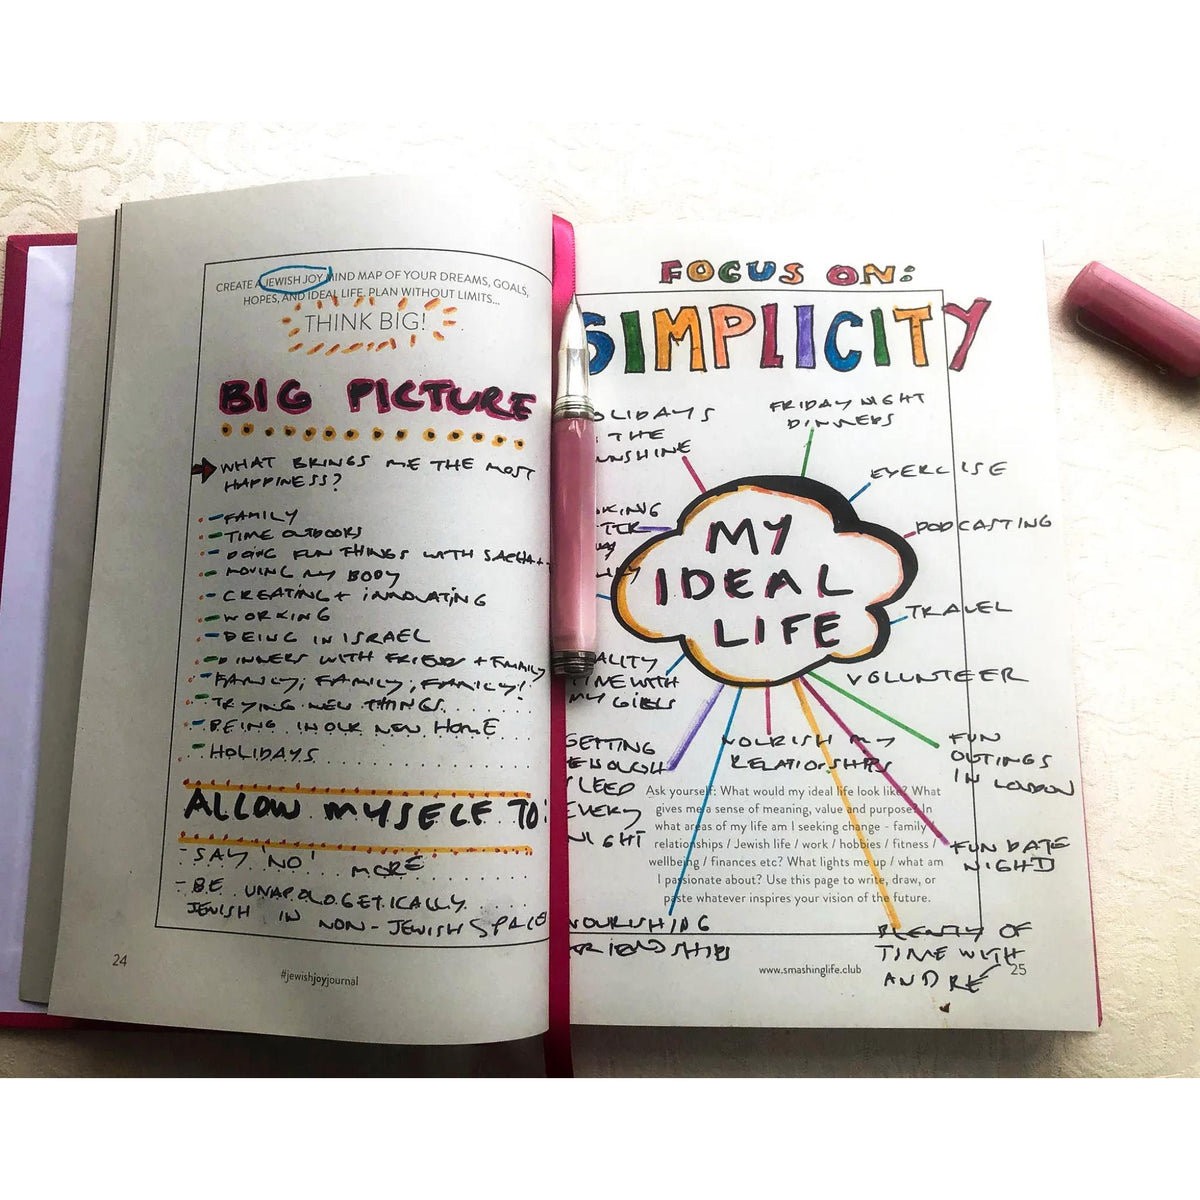 CREATE A JEWISH JOY MIND MAP OF YOUR DREAMS, GOALS,
HOPES, AND IDEAL LIFE. PLAN WITHOUT LIMITS...
THINK BIG!
BIG PICTURE
WHAT BRINGS ME THE MOST
HAPPINESS?
- FAMILY
- TIME OUTDOORS
- DOING FUN THINGS WITH SACHA +
- MOVING MY BODY
- CREATING + INNOVATING
- WORKING
- BEING IN ISRAEL
- DINNERS WITH FRIENDS + FAMILY
- FAMILY, FAMILY, FAMILY!
- TRYING NEW THINGS
- BEING IN OUR NEW HOME
- HOLIDAYS
ALLOW MYSELF TO:
- SAY 'NO' MORE
- BE UNAPOLOGETICALLY
JEWISH IN NON-JEWISH SPACE
24
#jewishjoyjournal
FOCUS ON:
SIMPLICITY
OLIDAYS
THE
NSHINE
FRIDAY NIGHT
DINNERS
EXERCISE
PODCASTING
TRAVEL
VOLUNTEER
FUN
OUTINGS
IN LONDON
FUN DATE
NIGHT
PLENTY OF
TIME WITH
ANDRE
MY
IDEAL
LIFE
KING
ALITY
TIME WITH
MY GIRLS
GETTING
ENOUGH
SLEEP
EVERY
NIGHT
NOURISH MY
RELATIOSHIPS
NOURISHING
FRIENDSHIPS
Ask yourself: What would my ideal life look like? What
gives me a sense of meaning, value and purpose? In
what areas of my life am I seeking change - family
relationships / Jewish life / work / hobbies / fitness /
wellbeing / finances etc? What lights me up / what am
I passionate about? Use this page to write, draw, or
paste whatever inspires your vision of the future.
www.smashinglife.club
25